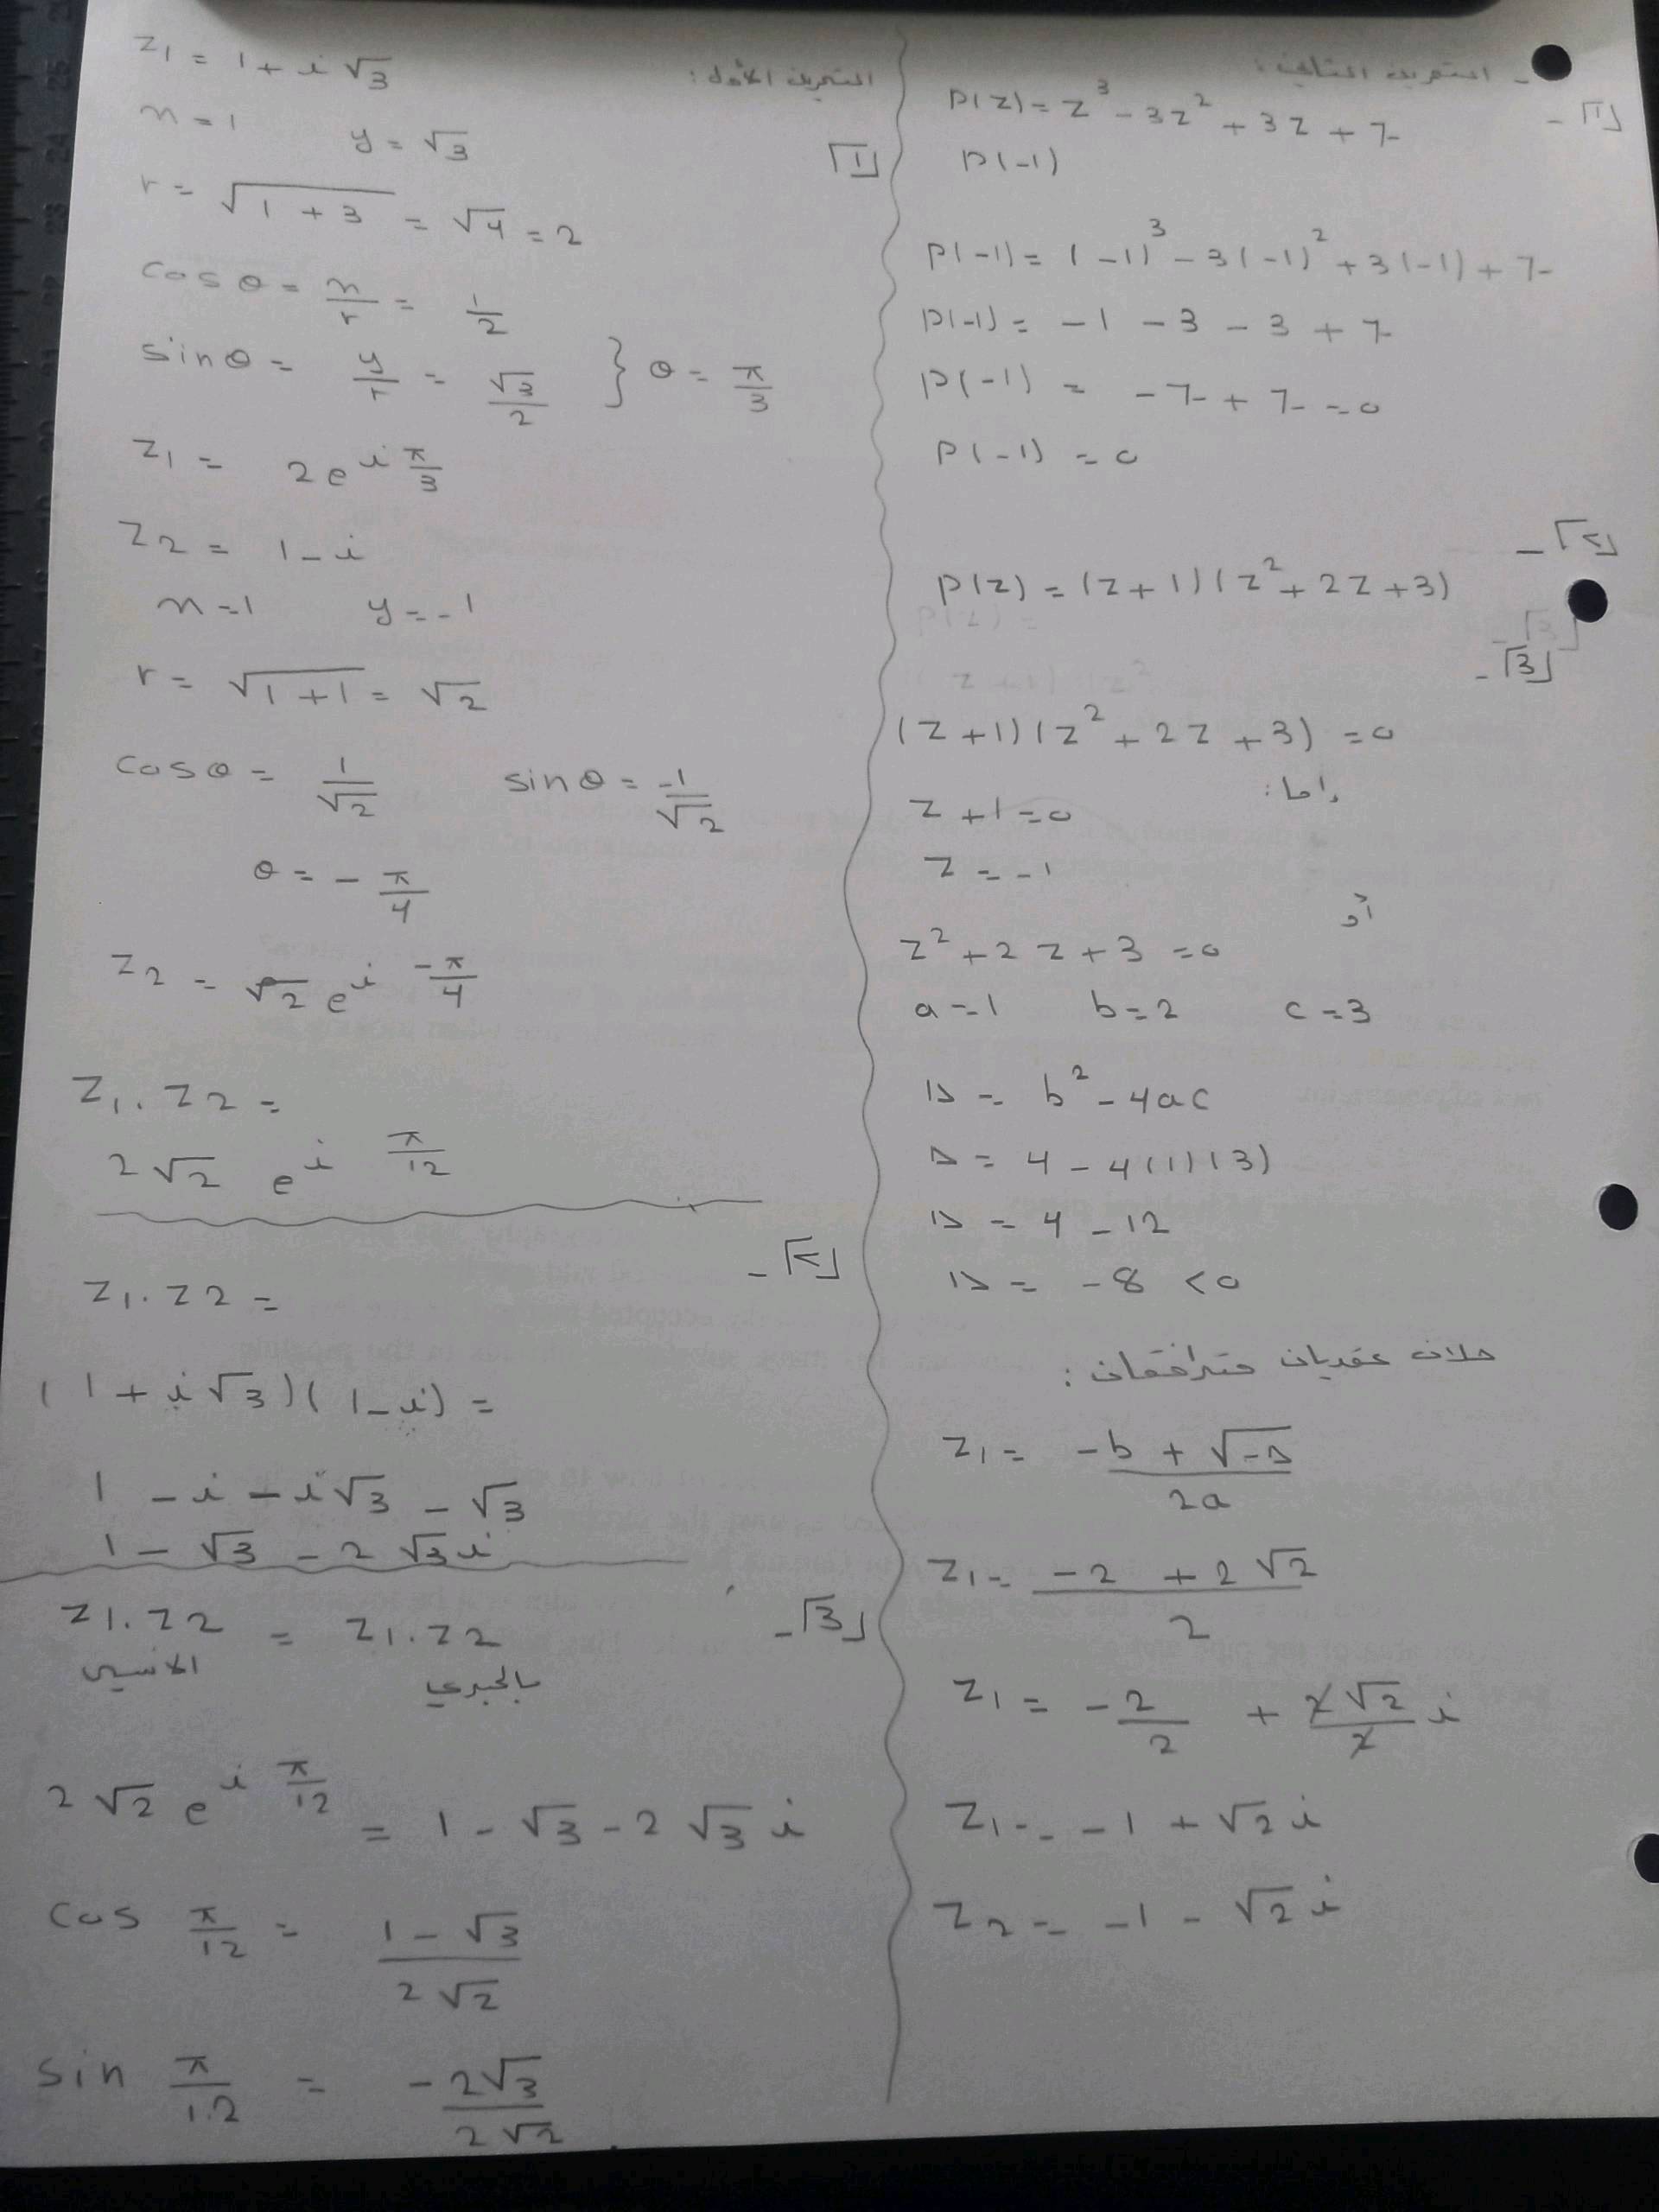 التمرين الأول:
[1]
z1 = 1 + i √3
x = 1 y = √3
r = √(1 + 3) = √4 = 2
cos θ = x/r = 1/2
sin θ = y/r = √3/2 } θ = π/3
z1 = 2 e^(i π/3)
z2 = 1 - i
x = 1 y = -1
r = √(1 + 1) = √2
cos θ = 1/√2 sin θ = -1/√2
θ = - π/4
z2 = √2 e^(i -π/4)
z1 . z2 =
2 √2 e^(i π/12)
- [2]
z1 . z2 =
(1 + i √3)(1 - i) =
1 - i - i √3 - √3
1 - √3 - 2 √3 i
- [3]
z1 . z2 = z1 . z2
الاسي بالجبري
2 √2 e^(i π/12) = 1 - √3 - 2 √3 i
cos π/12 = (1 - √3)/(2 √2)
sin π/12 = (-2 √3)/(2 √2)
- التمرين الثاني:
- [1]
P(z) = z³ - 3z² + 3z + 7
P(-1)
P(-1) = (-1)³ - 3(-1)² + 3(-1) + 7
P(-1) = -1 - 3 - 3 + 7
P(-1) = -7 + 7 = 0
P(-1) = 0
- [2]
P(z) = (z + 1)(z² + 2z + 3)
- [3]
(z + 1)(z² + 2z + 3) = 0
إما:
z + 1 = 0
z = -1
أو
z² + 2z + 3 = 0
a = 1 b = 2 c = 3
Δ = b² - 4ac
Δ = 4 - 4(1)(3)
Δ = 4 - 12
Δ = -8 < 0
حلان عقديان مترافقان:
z1 = (-b + √-Δ)/2a
z1 = (-2 + 2 √2)/2
z1 = -2/2 + (2 √2)/2 i
z1 = -1 + √2 i
z2 = -1 - √2 i